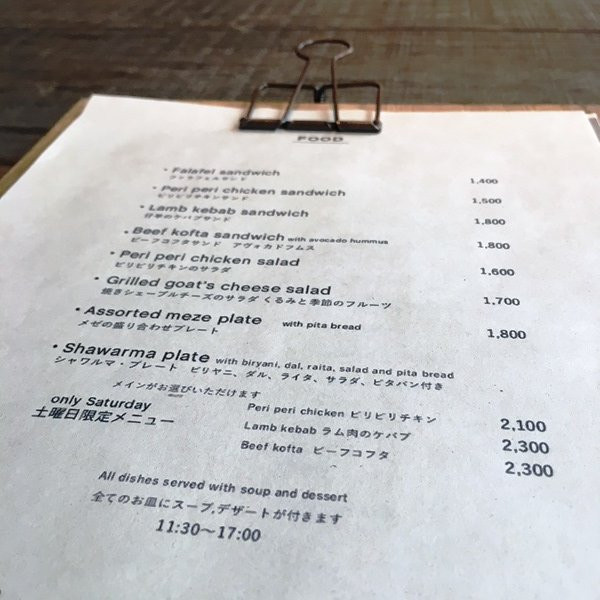 FOOD
・Falafel sandwich 1,400
ファラフェルサンド
・Peri peri chicken sandwich 1,500
ピリピリチキンサンド
・Lamb kebab sandwich 1,800
仔羊のケバブサンド
・Beef kofta sandwich with avocado hummus 1,800
ビーフコフタサンド アヴォカドフムス
・Peri peri chicken salad 1,600
ピリピリチキンのサラダ
・Grilled goat's cheese salad 1,700
焼きシェーブルチーズのサラダ くるみと季節のフルーツ
・Assorted meze plate with pita bread 1,800
メゼの盛り合わせプレート
・Shawarma plate with biryani, dal, raita, salad and pita bread
シャワルマ・プレート ビリヤニ、ダル、ライタ、サラダ、ピタパン付き
メインがお選びいただけます
only Saturday
土曜日限定メニュー
Peri peri chicken ピリピリチキン 2,100
Lamb kebab ラム肉のケバブ 2,300
Beef kofta ビーフコフタ 2,300
All dishes served with soup and dessert
全てのお皿にスープ,デザートが付きます
11:30〜17:00